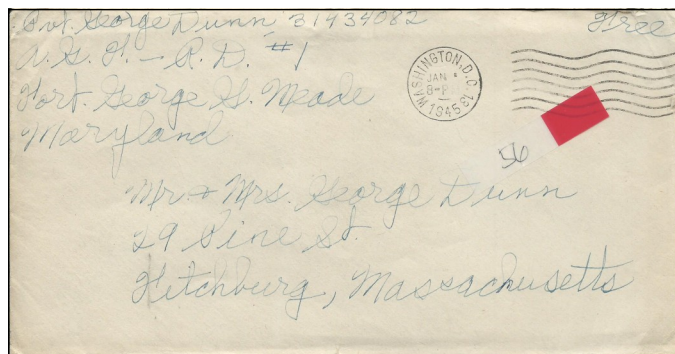 Pvt. George Dunn 31434082
Free
A.G.F. - R.D. #1
Fort George G. Meade
Maryland
WASHINGTON, D.C. 13
JAN
8-P
1945
56
Mr. + Mrs. George Dunn
29 Pine St.
Fitchburg, Massachusetts